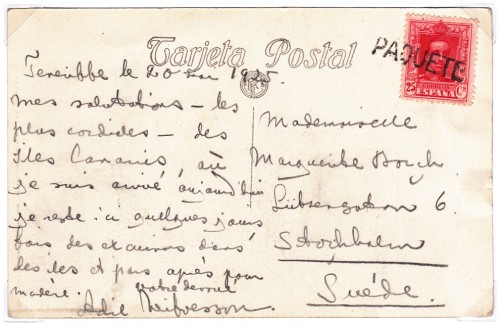 Tarjeta Postal
PAQUETE
25 Cs
ESPAÑA
Teneriffe le 20 1925
mes salutations - les
plus cordiales - des
Iles Canaries, où
je suis arrivé aujourd'hui
je reste ici quelques jours
fais des excursions dans
des iles et pars après pour
madère. votre dévoué
Mademoiselle
Marguerite
6.
Stockholm
Suéde.